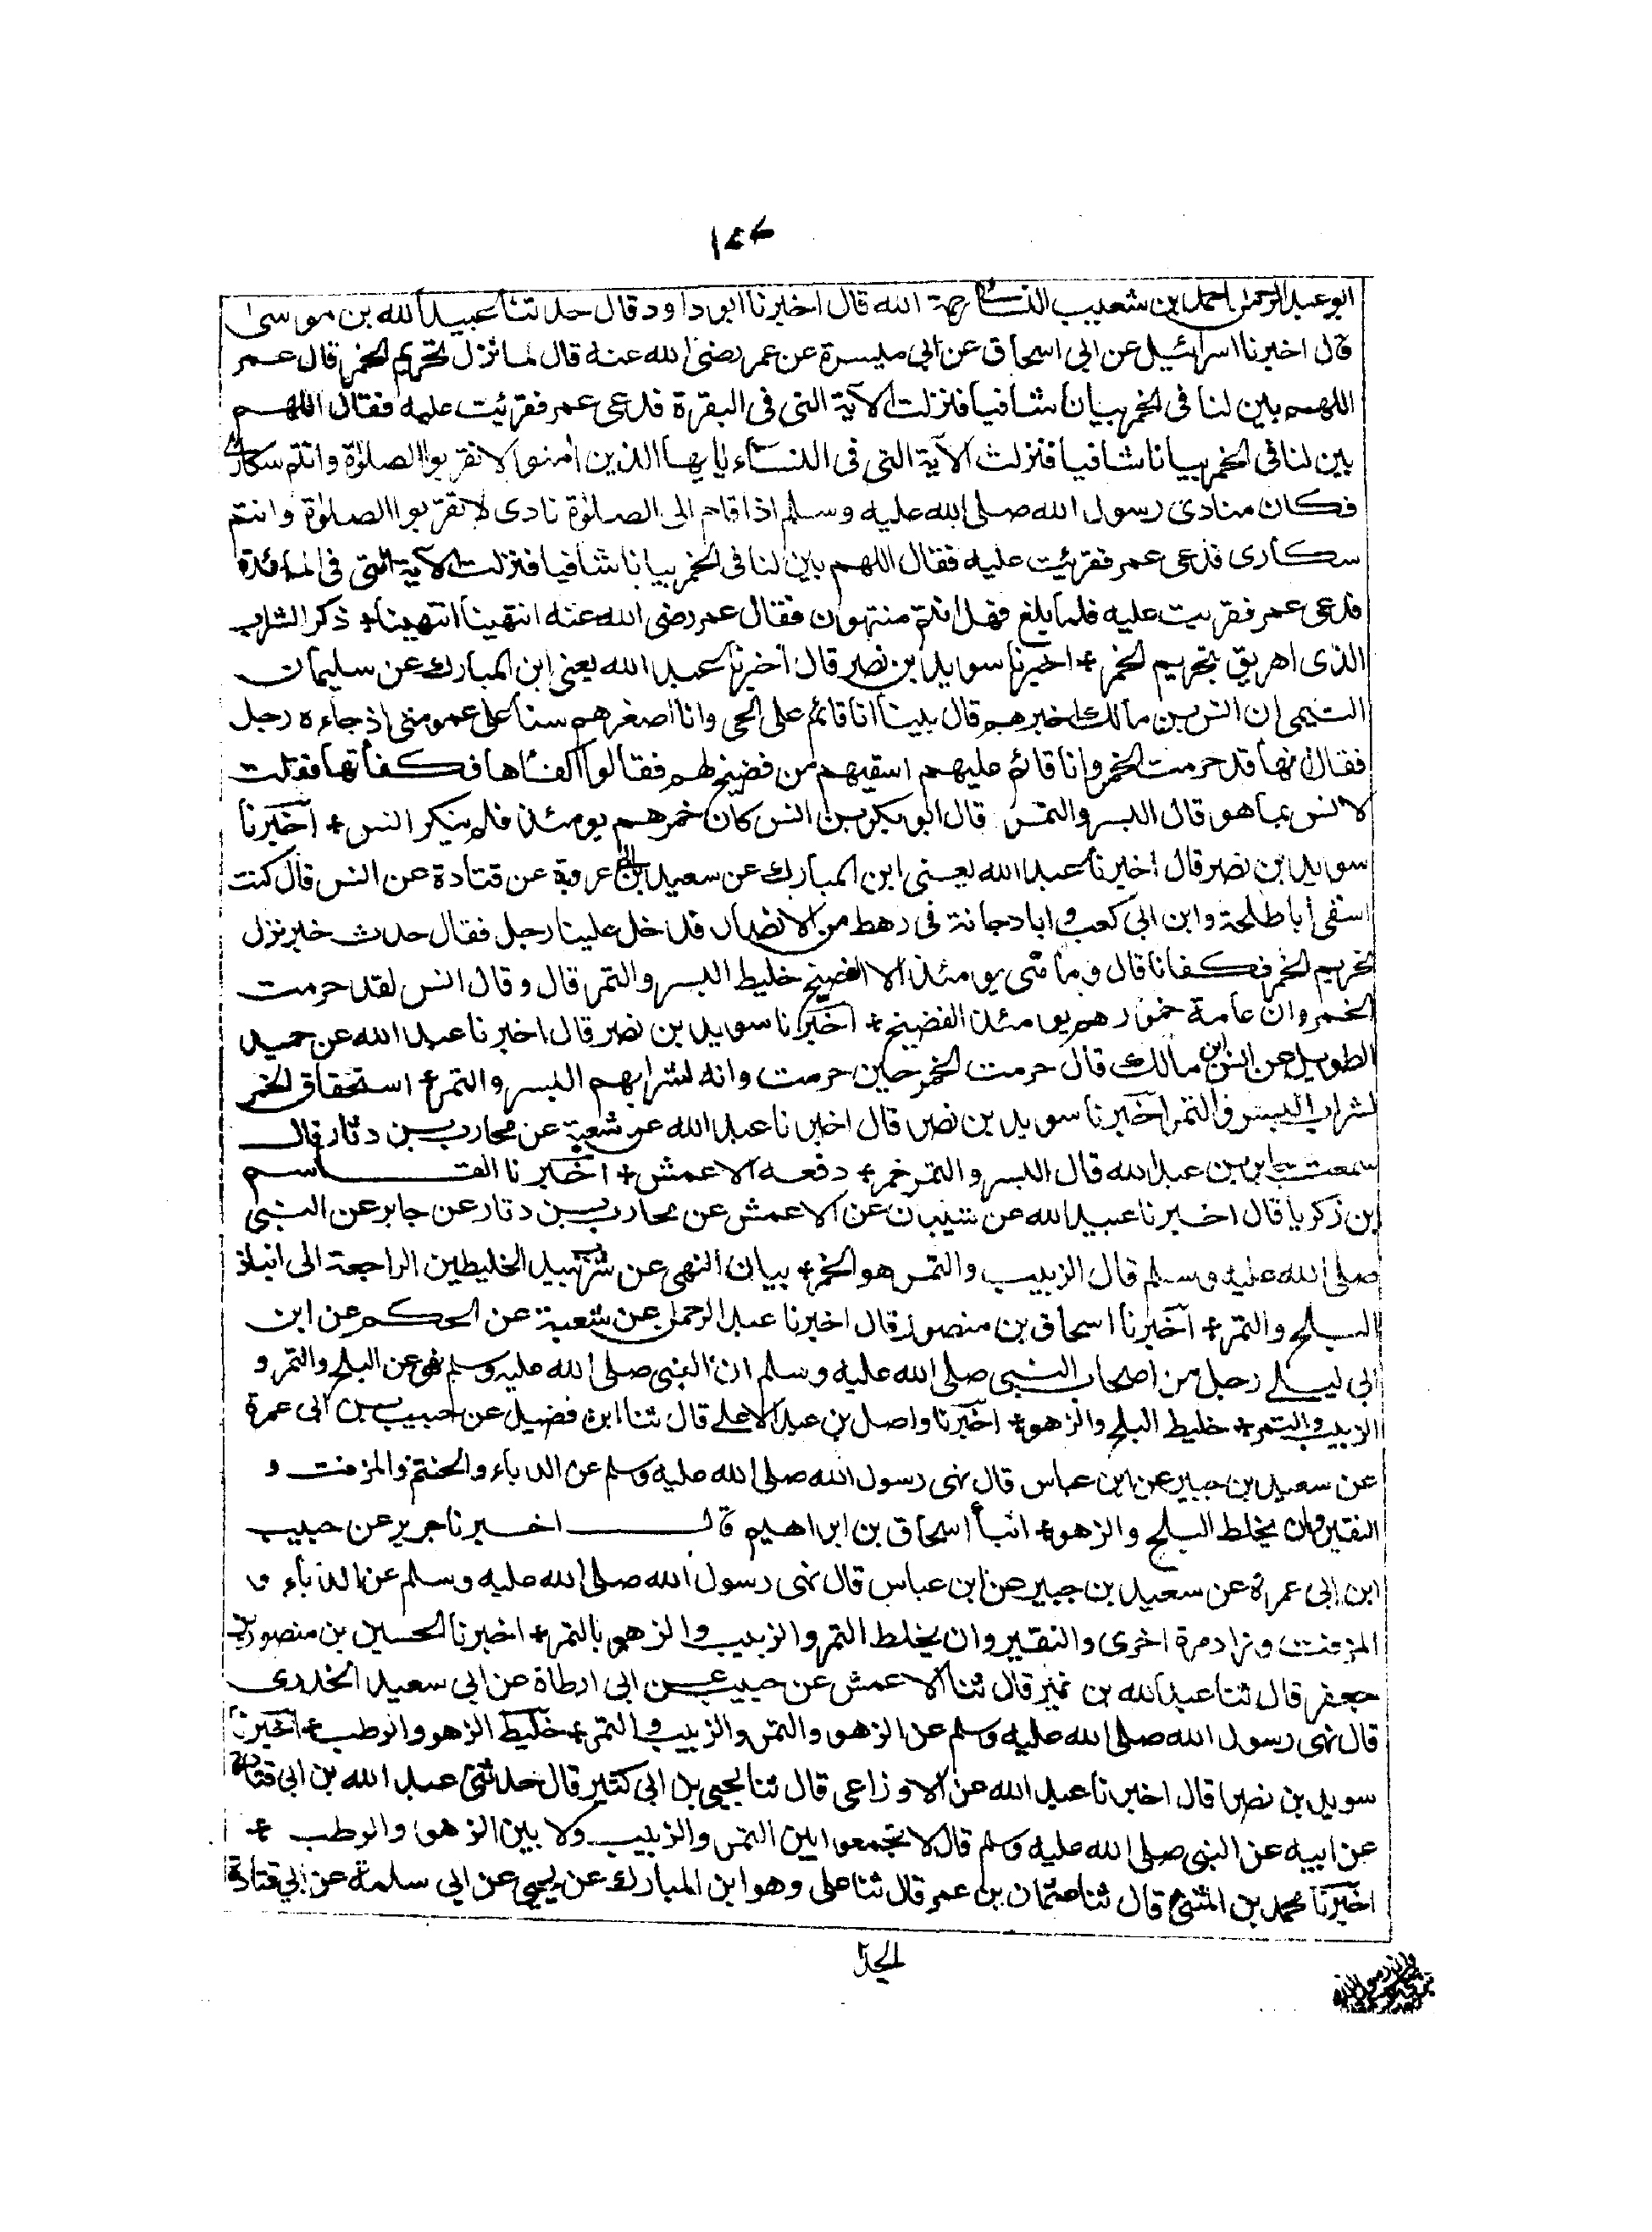 ابو عبد الرحمن احمد بن شعيب النسائى رحمة الله قال اخبرنا ابو داود قال حدثنا عبيد الله بن موسى
قال اخبرنا اسرائيل عن ابى اسحاق عن ابى ميسرة عن عمر رضى الله عنه قال لما نزل تحريم الخمر قال عمر
اللهم بين لنا فى الخمر بيانا شافيا فنزلت الآية التى فى البقرة فدعى عمر فقرئت عليه فقال اللهم
بين لنا فى الخمر بيانا شافيا فنزلت الآية التى فى النساء يايها الذين امنوا لا تقربوا الصلوة وانتم سكارى
فكان منادى رسول الله صلى الله عليه وسلم اذا قام الى الصلوة نادى لا تقربوا الصلوة وانتم
سكارى فدعى عمر فقرئت عليه فقال اللهم بين لنا فى الخمر بيانا شافيا فنزلت الآية التى فى المائدة
فدعى عمر فقرئت عليه فلما بلغ فهل انتم منتهون فقال عمر رضى الله عنه انتهينا انتهينا + ذكر الشراب
الذى اهريق بتحريم الخمر + اخبرنا سويد بن نصر قال اخبرنا عبد الله يعنى ابن المبارك عن سليمان
التيمى ان انس بن مالك اخبرهم قال بينا انا قائم على الحى وانا اصغرهم سنا على عمومتى اذ جاءه رجل
فقال انها قد حرمت الخمر وانا قائم عليهم اسقيهم من فضيخ لهم فقالوا اكفئاها فكفأتها فقلت
لانس بما هو قال البسر والتمر قال ابو بكر بن انس كان خمرهم يومئذ فلم ينكر انس + اخبرنا
سويد بن نصر قال اخبرنا عبد الله يعنى ابن المبارك عن سعيد بن ابى عروبة عن قتادة عن انس قال كنت
اسقى أبا طلحة وابن ابى كعب و ابا دجانة فى رهط من الانصار فدخل علينا رجل فقال حدث خبر نزل
تحريم الخمر فكفانا قال و ما هى يومئذ الا الفضيخ خليط البسر والتمر قال وقال انس لقد حرمت
الخمر وان عامة خمورهم يومئذ الفضيخ + اخبرنا سويد بن نصر قال اخبرنا عبد الله عن حميد
الطويل عن انس ابن مالك قال حرمت الخمر حين حرمت وانه لشرابهم البسر والتمر + استحقاق الخمر
لشراب البسر والتمر اخبرنا سويد بن نصر قال اخبرنا عبد الله عن شعبة عن محارب بن دثار قال
سمعت جابر بن عبد الله قال البسر والتمر خمر + رفعه الاعمش + اخبرنا القاسم
ابن زكريا قال اخبرنا عبيد الله عن شيبان عن الاعمش عن محارب بن دثار عن جابر عن النبى
صلى الله عليه وسلم قال الزبيب والتمر هو الخمر + بيان النهى عن شرب نبيذ الخليطين الراجعة الى انباذ
البلح والتمر + اخبرنا اسحاق بن منصور قال اخبرنا عبد الرحمن عن شعبة عن الحكم عن ابن
ابى ليلے رجل من اصحاب النبى صلى الله عليه وسلم ان النبى صلى الله عليه وسلم نهى عن البلح والتمر و
الزبيب والتمر + خليط البلح والزهو + اخبرنا واصل بن عبد الاعلے قال ثنا ابن فضيل عن حبيب بن ابى عمرة
عن سعيد بن جبير عن ابن عباس قال نهى رسول الله صلى الله عليه وسلم عن الدباء والحنتم والمزفت و
النقير وان يخلط البلح والزهو + انبأ اسحاق بن ابراهيم قال اخبرنا جرير عن حبيب
ابن ابى عمرة عن سعيد بن جبير عن ابن عباس قال نهى رسول الله صلى الله عليه وسلم عن الدباء و
المزفت وزاد مرة اخرى والنقير وان يخلط التمر والزبيب والزهو بالتمر + اخبرنا الحسين بن منصور بن
جعفر قال ثنا عبد الله بن نمير قال ثنا الاعمش عن حبيب عن ابى ارطاة عن ابى سعيد الخدرى
قال نهى رسول الله صلى الله عليه وسلم عن الزهو والتمر والزبيب والتمر + خليط الزهو والرطب + اخبرنا
سويد بن نصر قال اخبرنا عبد الله عن الاوزاعى قال ثنا يحيى بن ابى كثير قال حدثنى عبد الله بن ابى قتادة
عن ابيه عن النبى صلى الله عليه وسلم قال لا تجمعوا بين التمر والزبيب ولا بين الزهو والرطب +
اخبرنا محمد بن المثنى قال ثنا عثمان بن عمر قال ثنا على وهو ابن المبارك عن يحيى عن ابى سلمة عن ابى قتادة